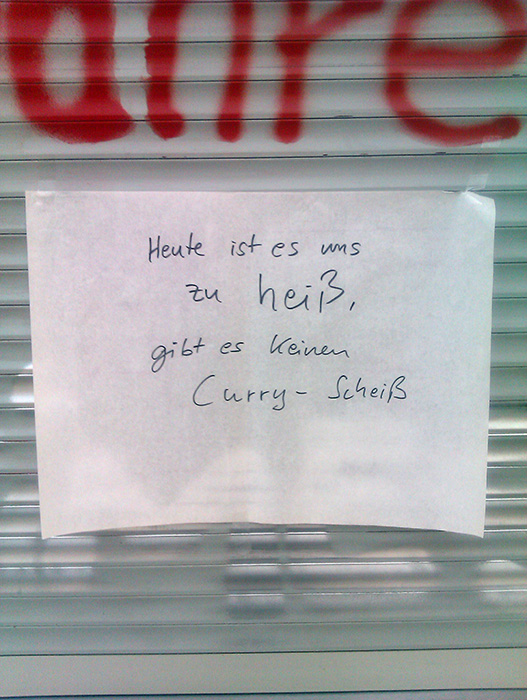 Heute ist es uns
zu heiß,
gibt es keinen
Curry-Scheiß